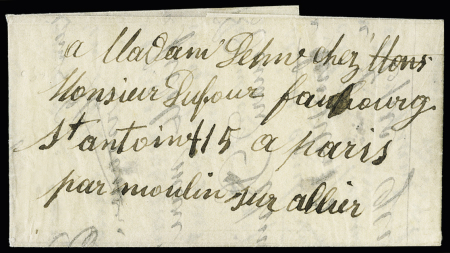 a Madam Dehne chez Mons
Monsieur Dufour faubourg
st antoin 415 a paris
par moulin sur allier